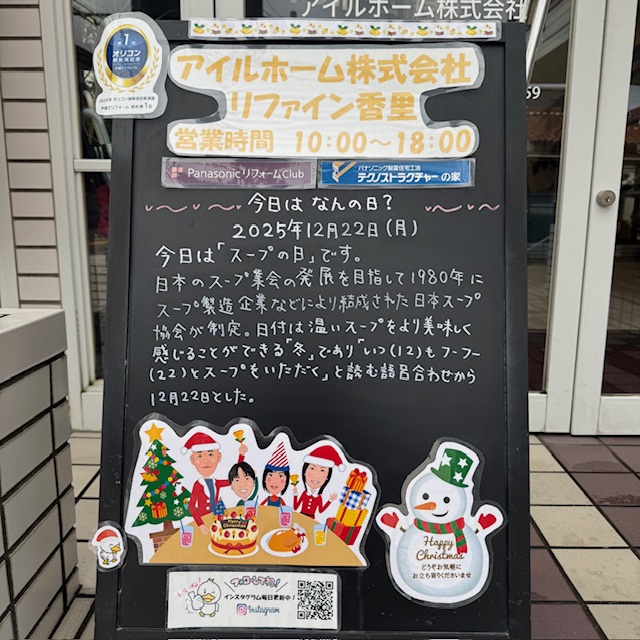 アイルホーム株式会社
59
No.1
オリコン
顧客満足度
アイルホーム株式会社
リファイン香里
営業時間 10:00〜18:00
PanasonicリフォームClub
パナソニック耐震住宅工法
テクノストラクチャーの家
今日は なんの日?
2025年12月22日(月)
今日は「スープの日」です。
日本のスープ業会の発展を目指して1980年に
スープ製造企業などにより結成された日本スープ
協会が制定。日付は温いスープをより美味しく
感じることができる「冬」であり「いつ(12)もフーフー
(22)とスープをいただく」と読む語呂合わせから
12月22日とした。
Merry Christmas
Happy
Christmas
どうぞお気軽に
お立ち寄りくださいませ
フォローしてね!
インスタグラム毎日更新中!
Instagram